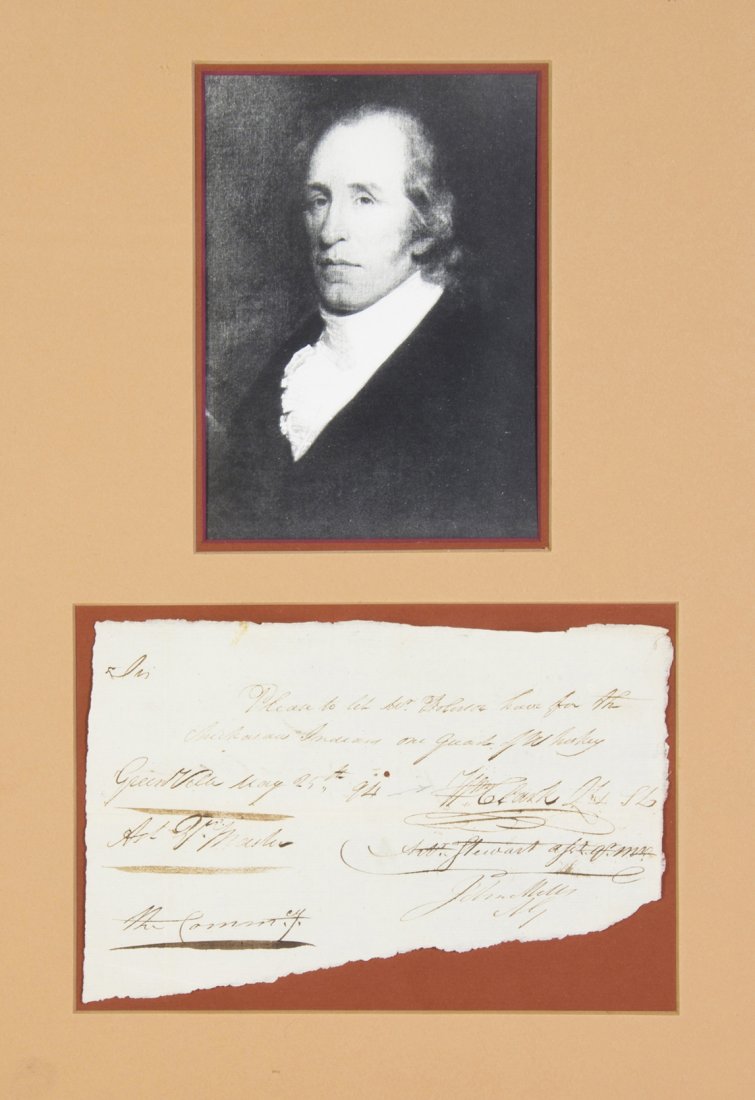 Sir
Please to let Mr. have for the
Chickasaws Indians one quart of Whiskey
GreenVille May 25th 94 Wm Clark Lt 4 SL
Ast Qr Master Stewart
John Mills
the Commsy.